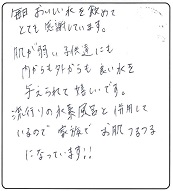 毎日おいしい水を飲めて
とても感謝しています。
肌が弱い子供達にも
内からも外からも良い水を
与えられて嬉しいです。
流行りの水素風呂と併用して
いるので家族でお肌つるつる
になっています!!